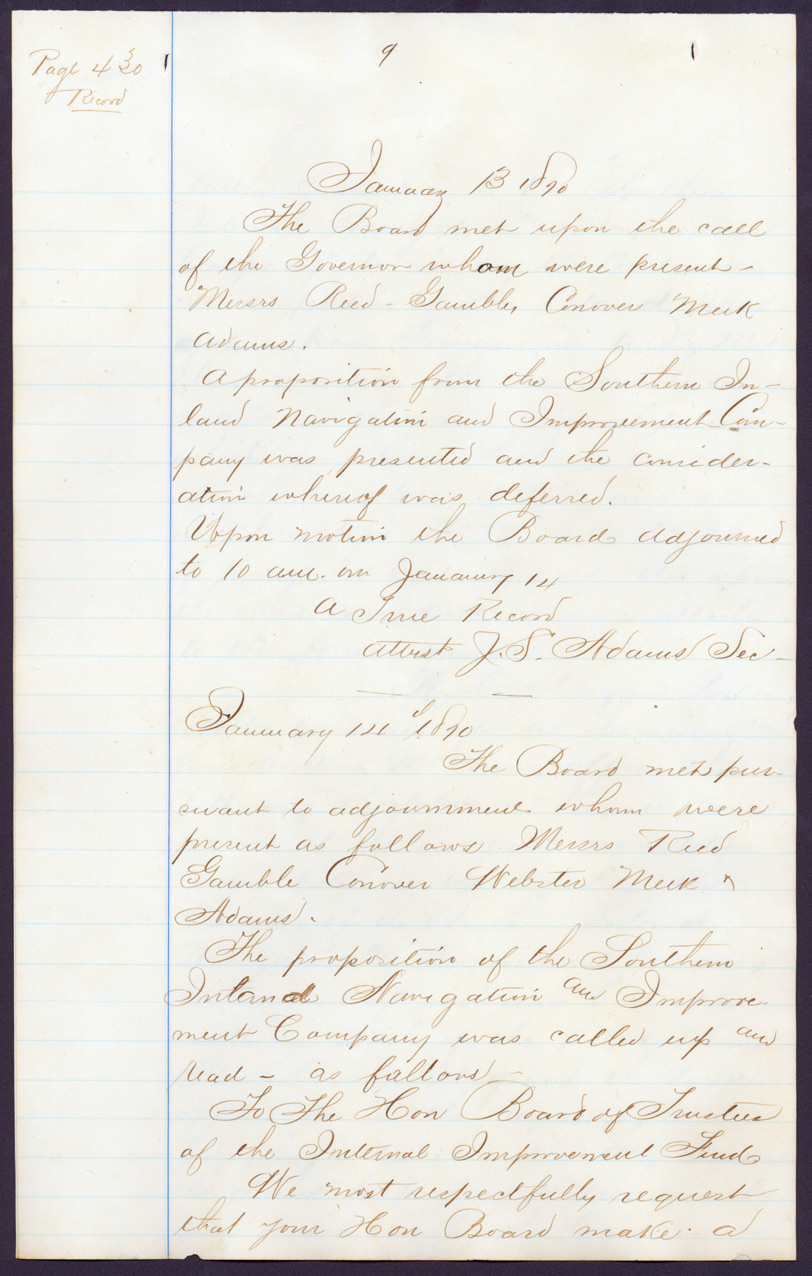 9
Page 430
Record
January 13 1870
The Board met upon the call
of the Governor whom were present -
Messrs Reed - Gamble, Conover Meek
Adams.
A proposition from the Southern In-
land Navigation and Improvement Com-
pany was presented and the consider-
ation whereof was deferred.
Upon motion the Board adjourned
to 10 am. on January 14
A True Record
Attest J. S. Adams Sec -
January 14 1870
The Board met pur-
suant to adjournment whom were
present as follows Messrs Reed
Gamble Conover Webster Meek &
Adams.
The proposition of the Southern
Inland Navigation and Improve-
ment Company was called up and
read - as follows -
To The Hon Board of Trustees
of the Internal Improvement Fund
We most respectfully request
that your Hon Board make a